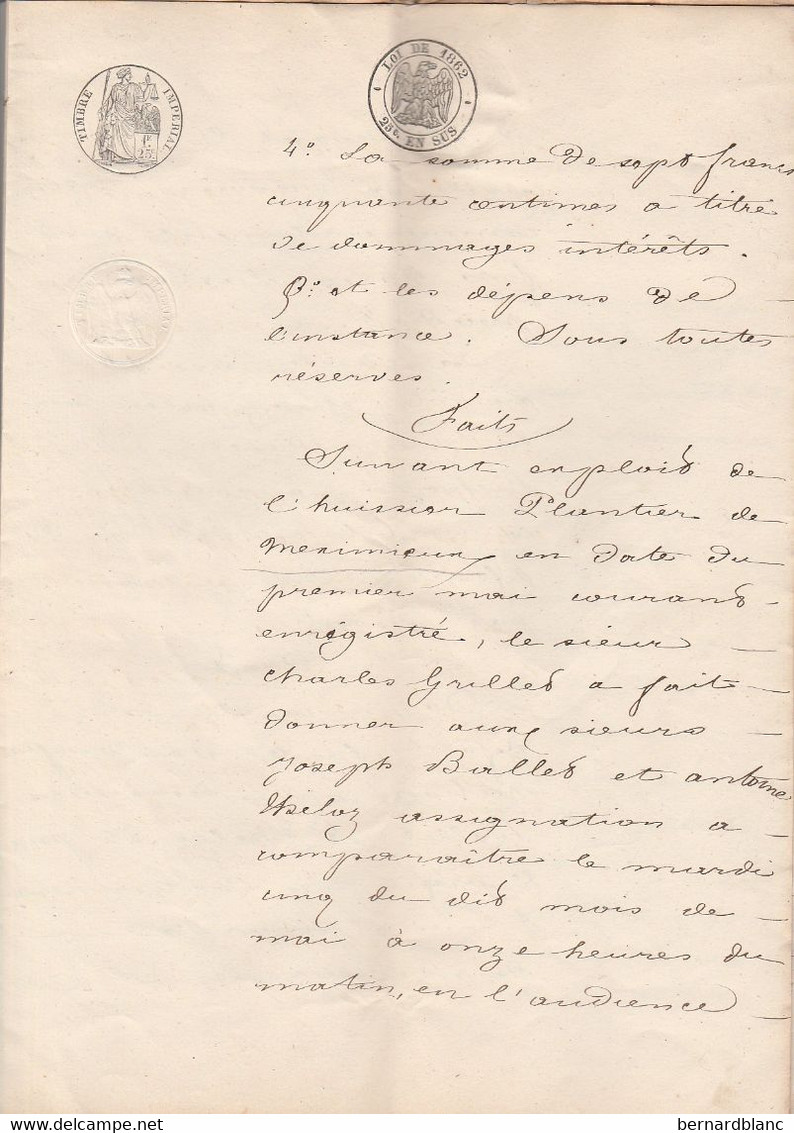 LOI DE 1862
25c. EN SUS
TIMBRE IMPERIAL
1F. 25c.
4° La somme de sept francs
cinquante centimes a titre
de dommages intérêts.
5° et les dépens de —
l'instance. Sous toutes
réserves.
Faits
Suivant exploit de
l'huissier Plantier de
Meximieux en date du
premier mai courant —
enrégistré, le sieur —
Charles Grillet a fait —
donner aux sieurs —
Joseph Ballet et antoine
assignation a —
comparaître le mardi
cinq du dit mois de —
mai à onze heures du
matin, en l'audience —
bernardblanc